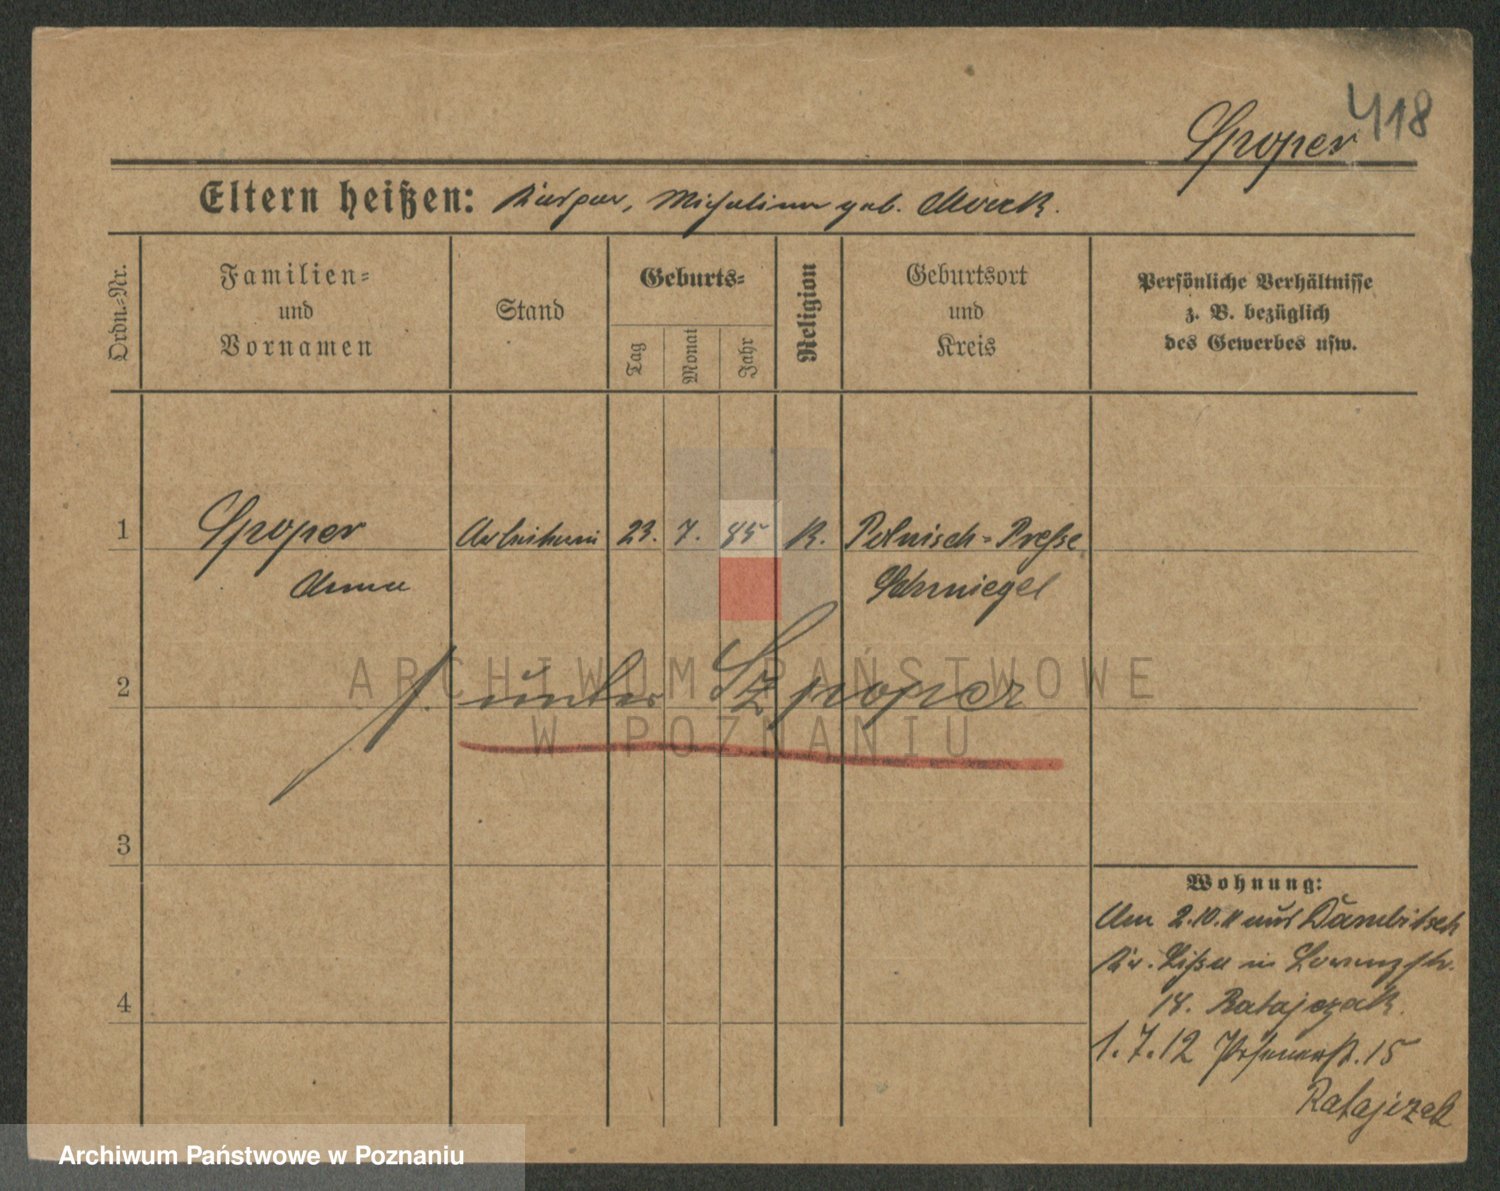 418
Spoper
Eltern heißen: Kaspar, Michalina geb.
Ordn.-Nr.
Familien-
und
Vornamen
Stand
Geburts-
Tag
Monat
Jahr
Religion
Geburtsort
und
Kreis
Persönliche Verhältnisse
z. B. bezüglich
des Gewerbes usw.
1 Spoper Arbeiterin 23. 7. 85 K. Polnisch-Presse
Anna Schmiegel
2 s. unter Szpoper
ARCHIWUM PAŃSTWOWE
W POZNANIU
3
4
Wohnung:
Am 2.10.11 aus Dambitsch
Kr. Lissa in Lorenzstr.
18. Ratajczak.
1.7.12 Posenerst. 15
Ratajczak
Archiwum Państwowe w Poznaniu